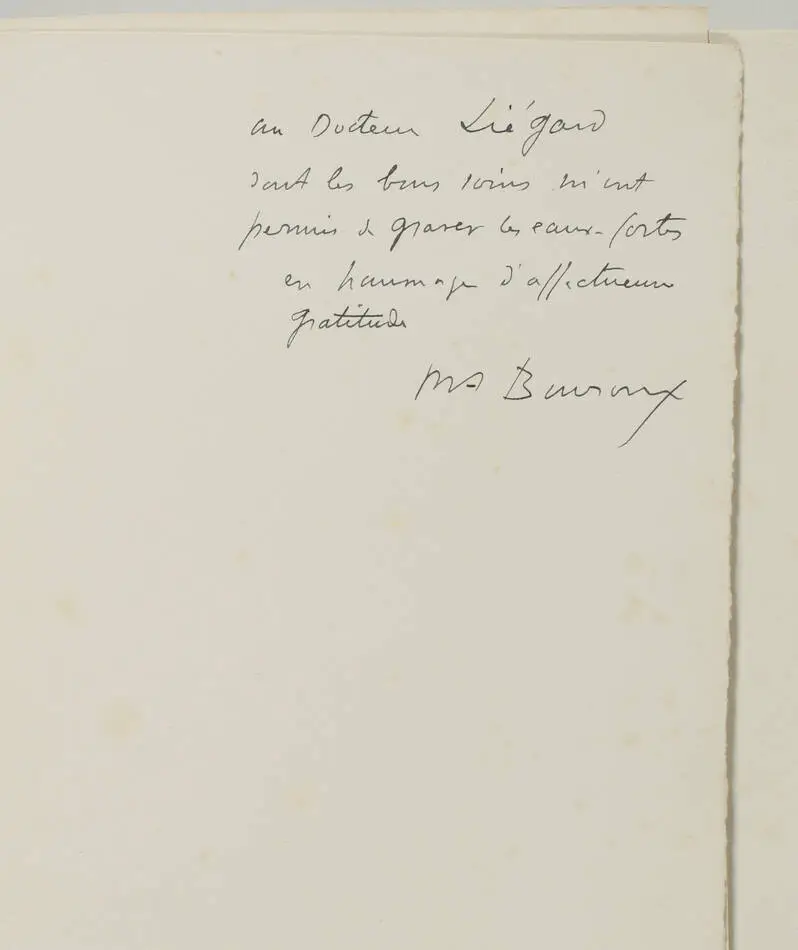 au Docteur Liégard
dont les bons soins m'ont
permis de graver les eaux-fortes
en hommage d'affectueuse
gratitude
PA Bouroux